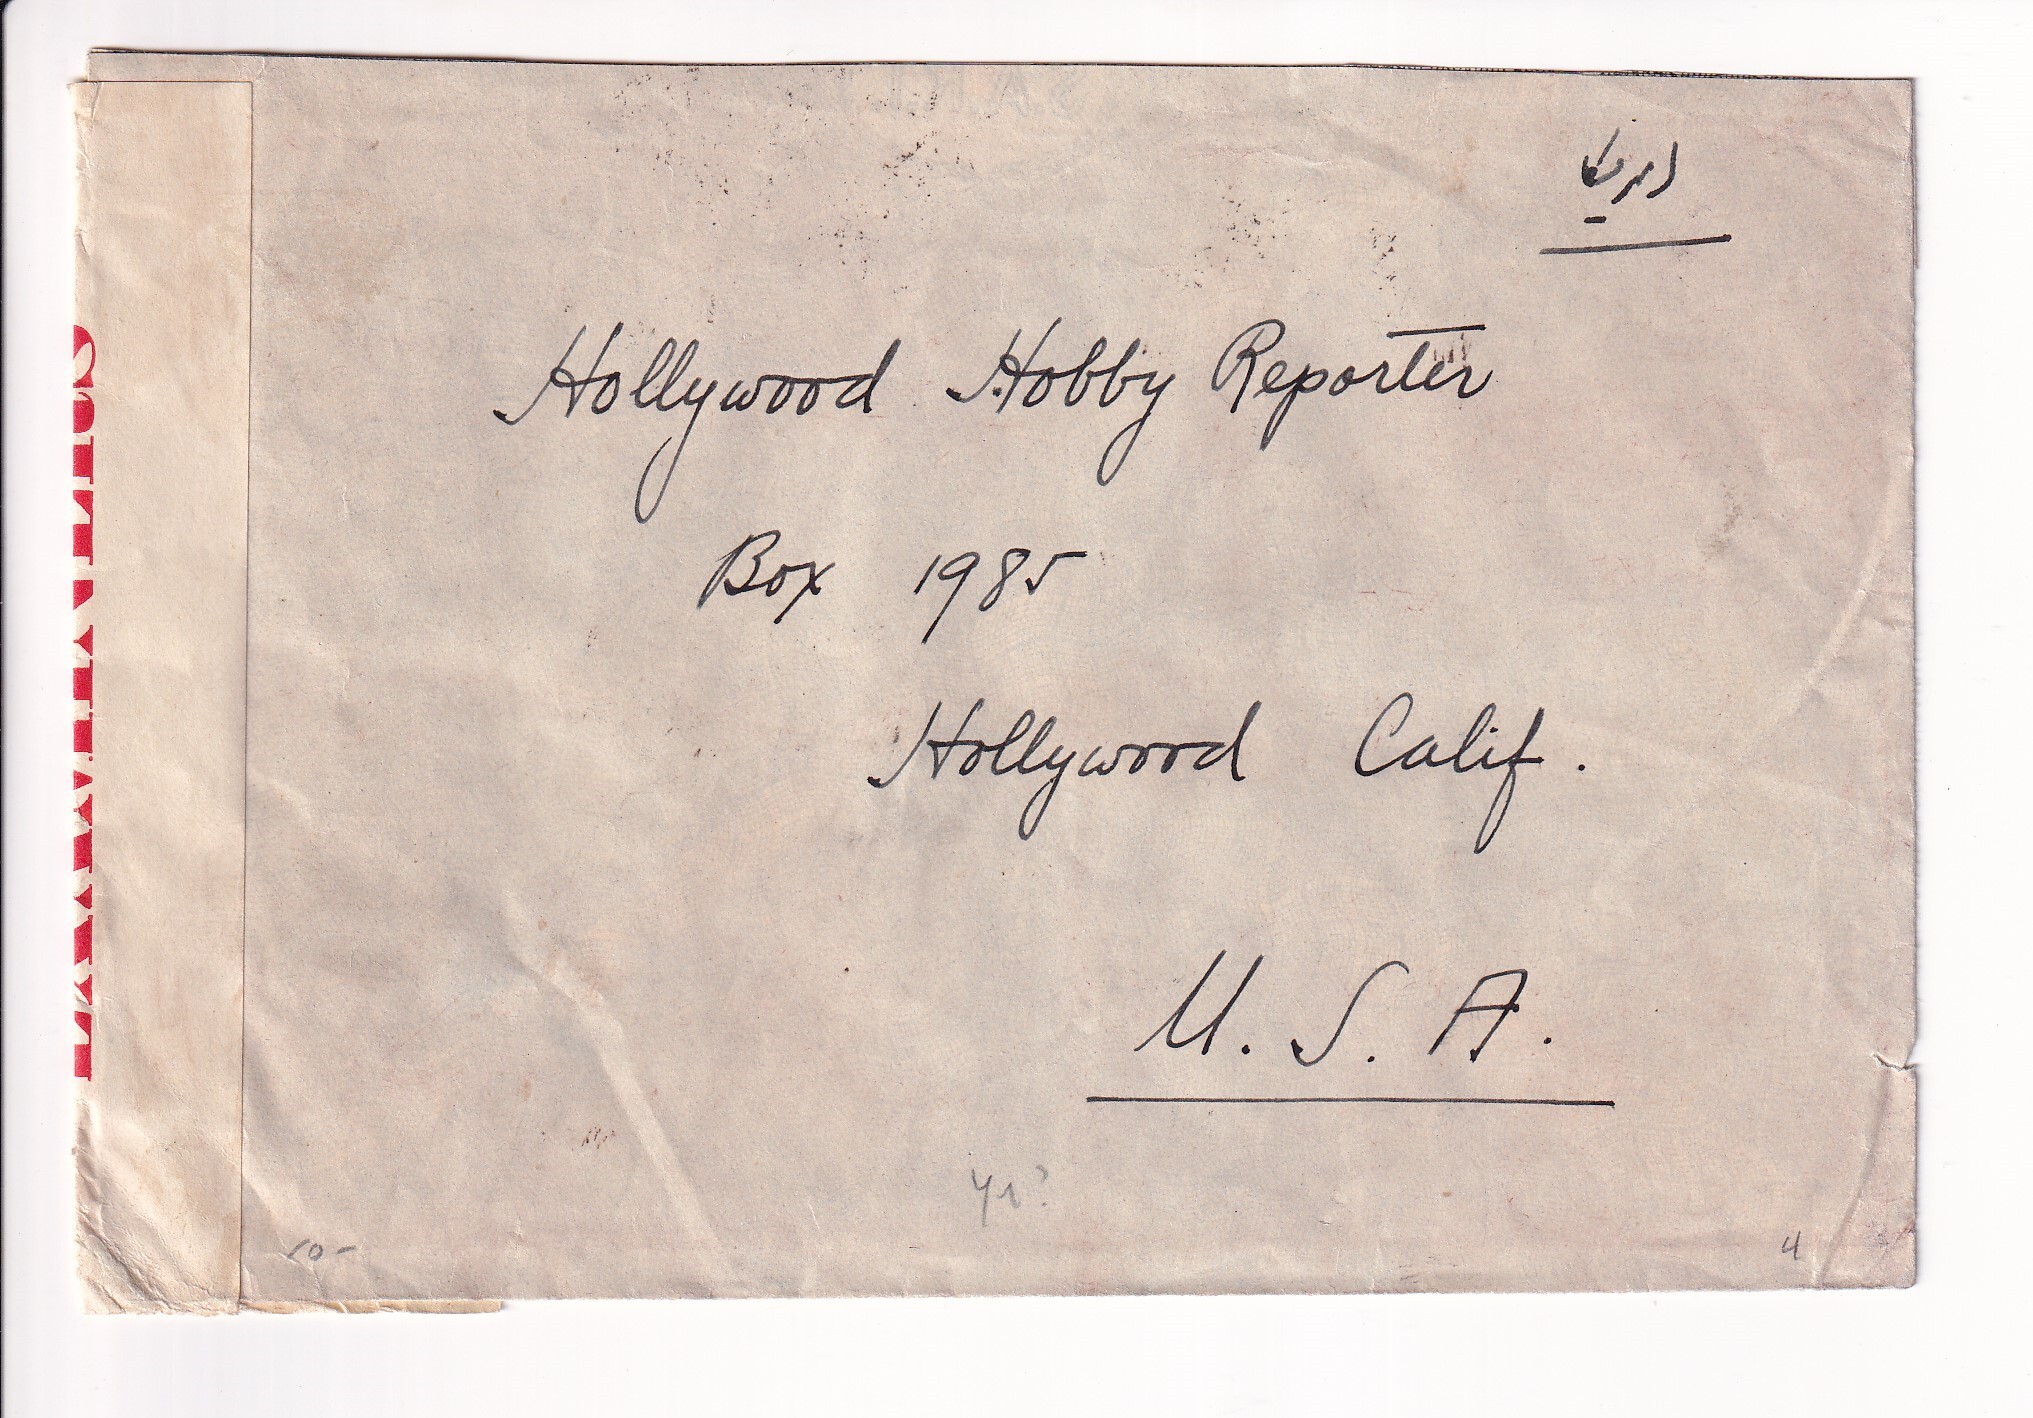 امریکا
Hollywood Hobby Reporter
Box 1985
Hollywood Calif.
U. S. A.
50-
4